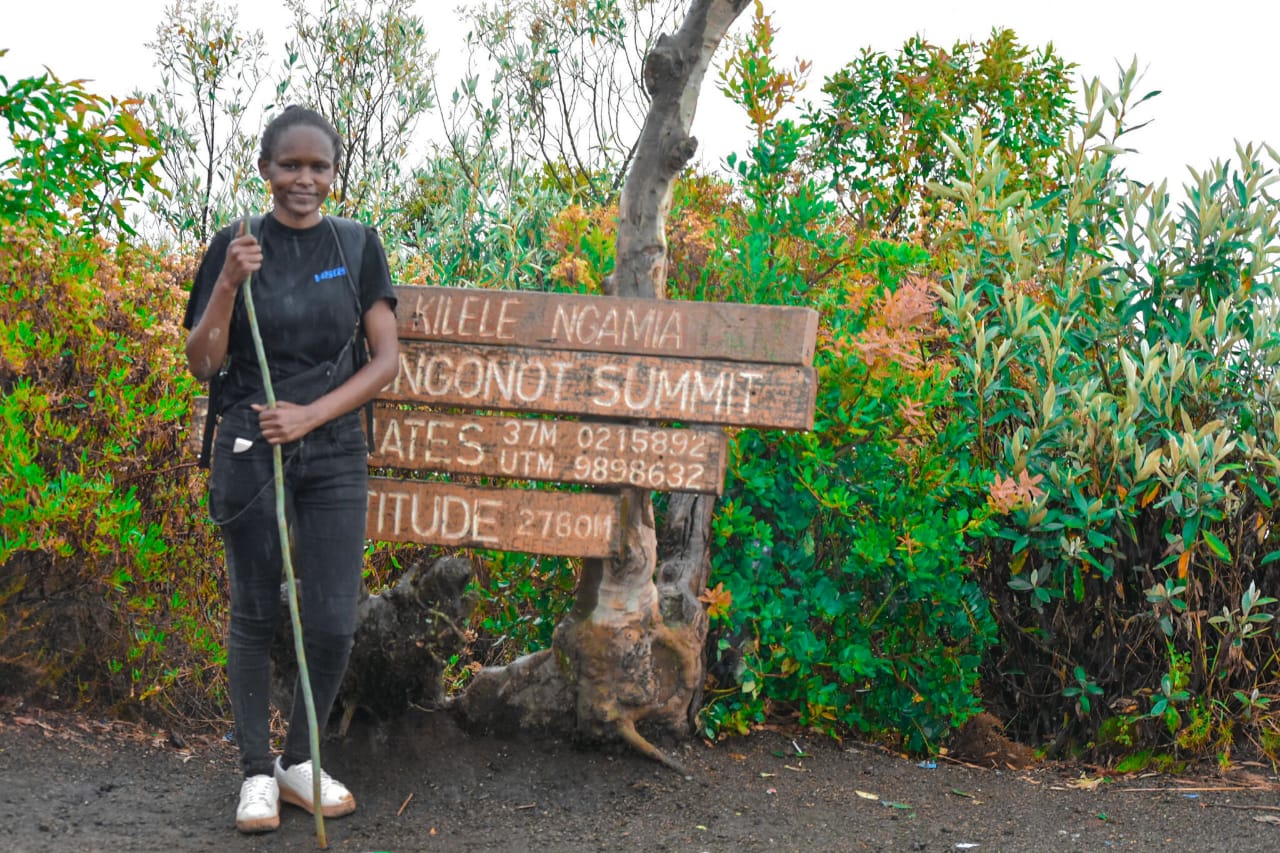 KILELE NGAMIA
NGONOT SUMMIT
ATES 37M 0215892
UTM 9898632
TITUDE 2780M